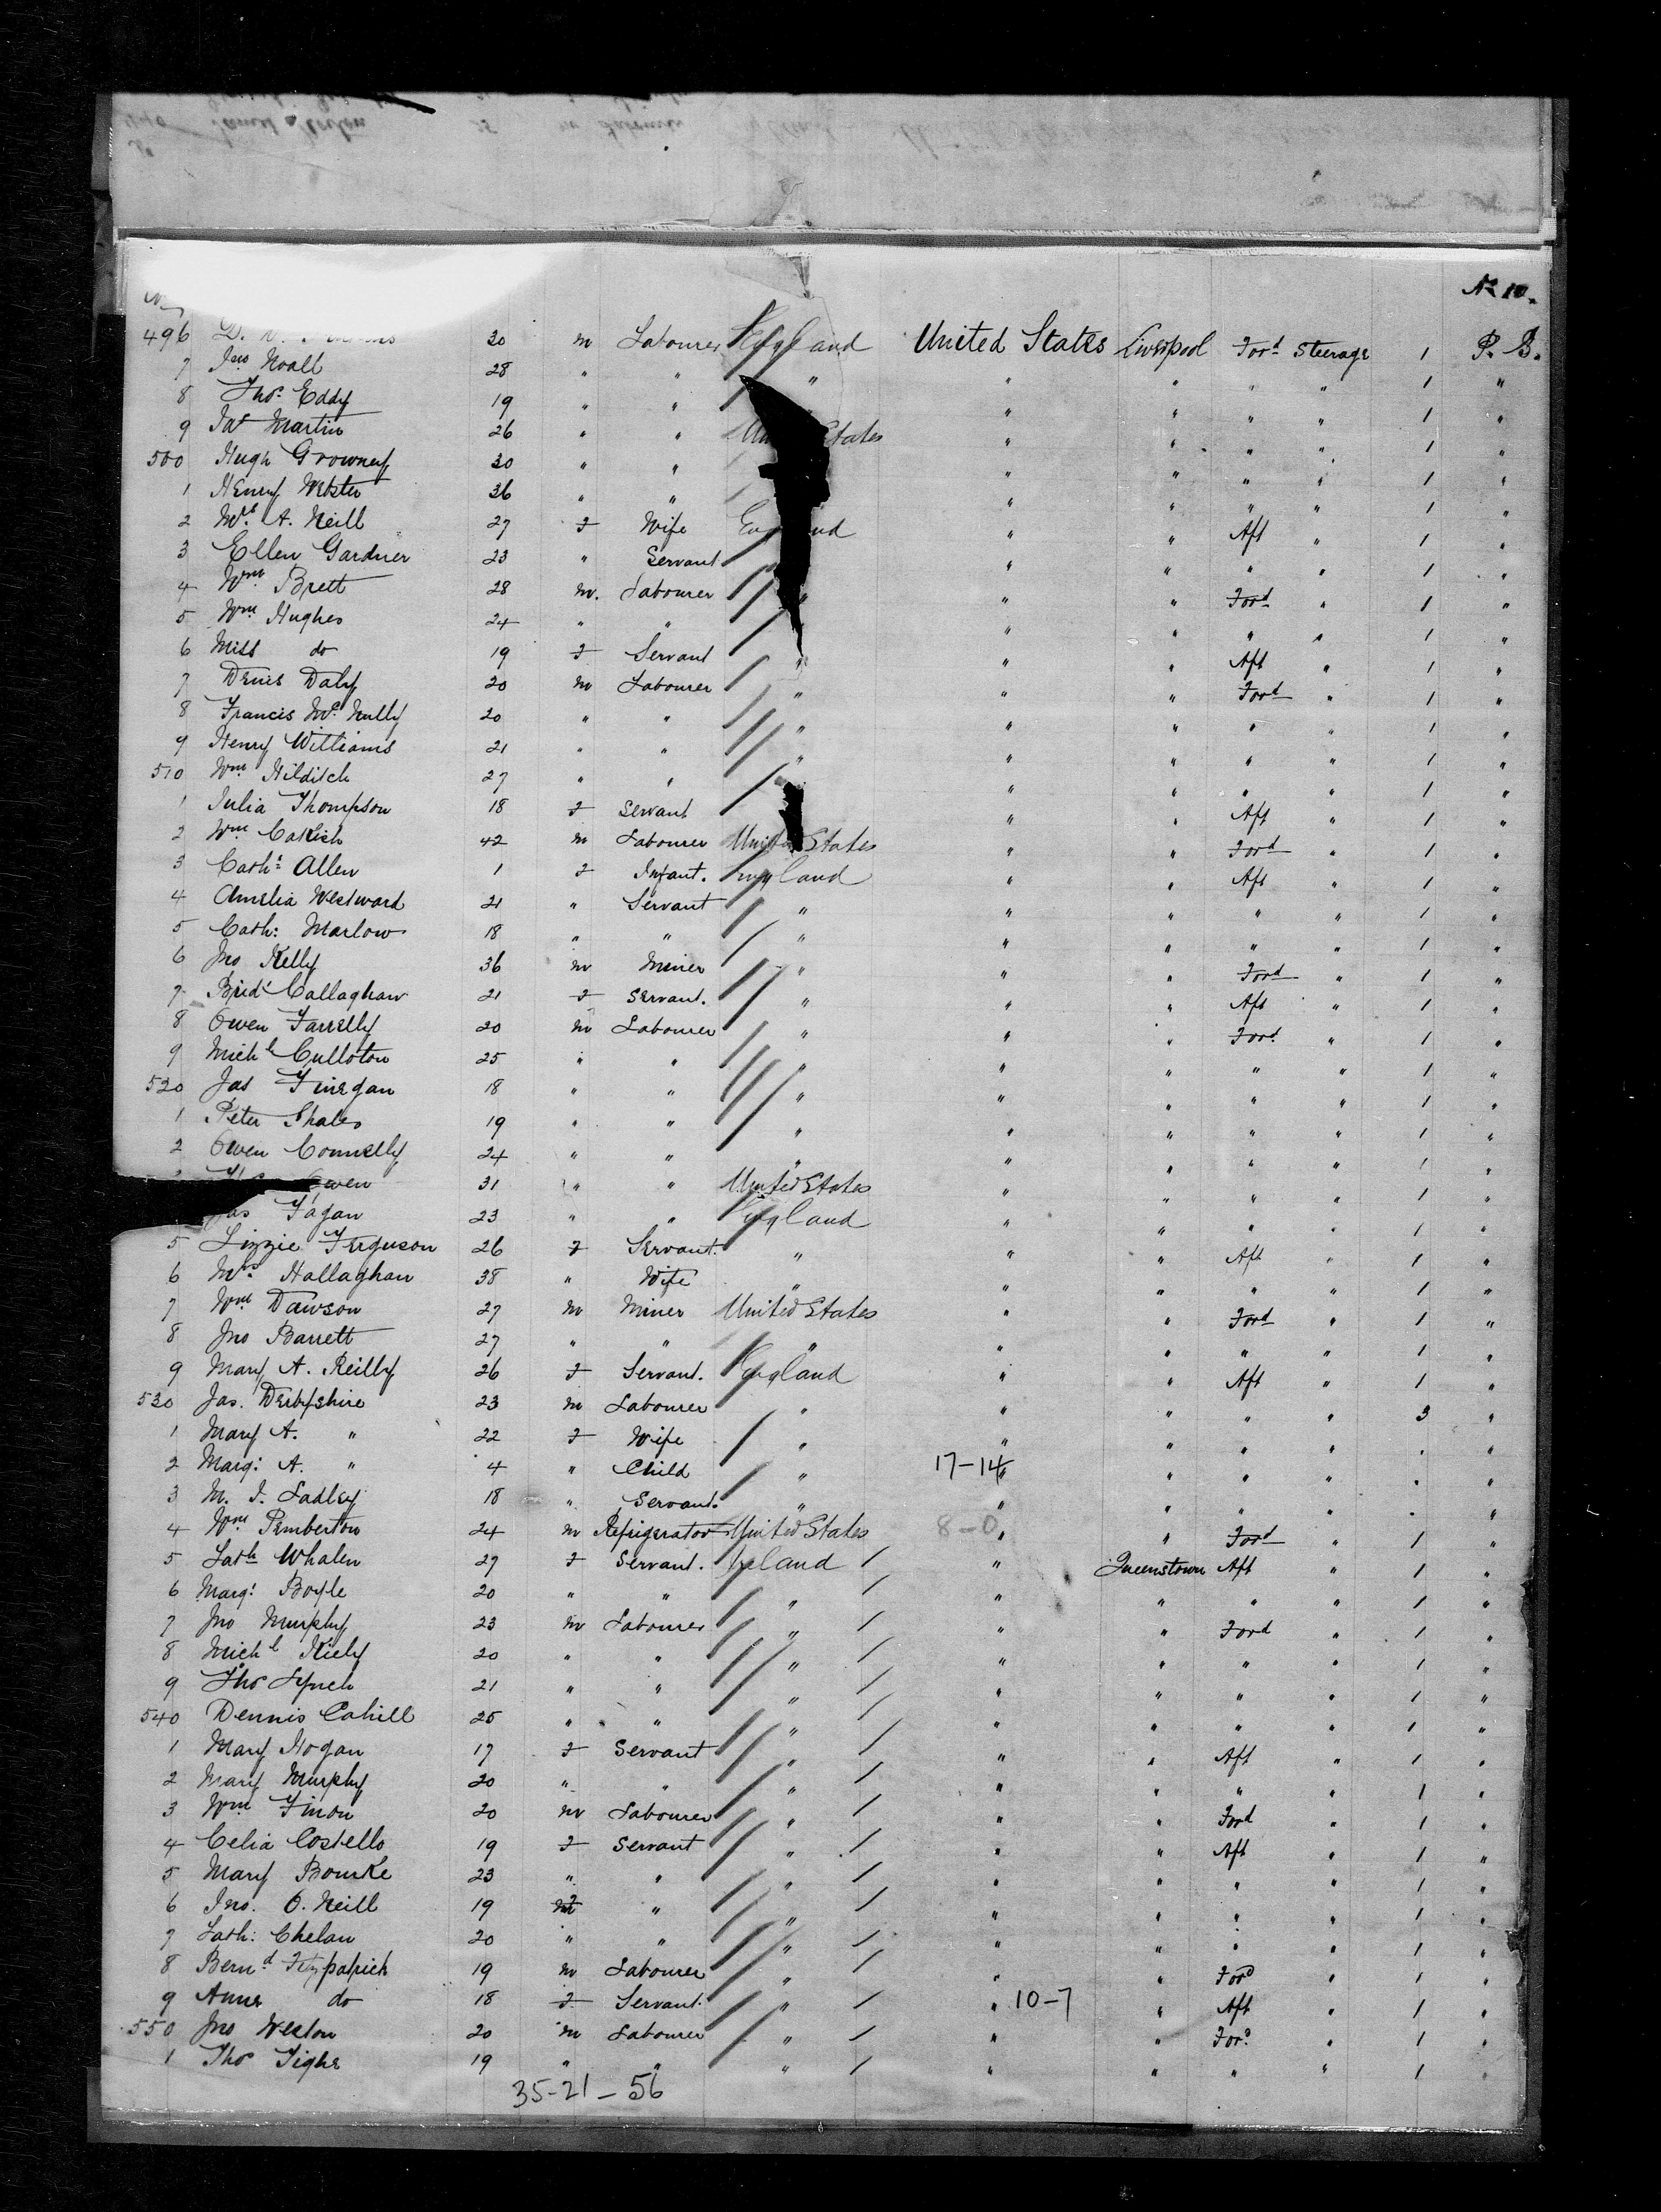 No 10.
496 30 m Labourer England United States Liverpool Ford Steerage 1 P. B.
7 Jno Noall 28 " " " " " " " 1 "
8 Thos Eddy 19 " " " " " " 1 "
9 Jas Martin 26 " " States " " " " 1 "
500 Hugh Growney 30 " " " " " " 1 "
1 Henry Webster 36 " " " " " " 1 "
2 Mrs A. Neill 27 F Wife England " " Aft " 1 "
3 Ellen Gardner 23 " Servant " " " " 1 "
4 Wm Brett 28 m. Labourer " " " Ford " 1 "
5 Wm Hughes 24 " " " " " " 1 "
6 Miss do 19 F Servant " " " Aft " 1 "
7 Denis Daly 20 m Labourer " " " Ford " 1 "
8 Francis McNully 20 " " " " " " " 1 "
9 Henry Williams 21 " " " " " " " 1 "
510 Wm Hilditch 27 " " " " " " 1 "
1 Julia Thompson 18 F Servant " " Aft " 1 "
2 Wm 42 m Labourer United States " " Ford " 1 "
3 Cath: Allen 1 F Infant. England " " Aft " 1 "
4 Amelia Westward 21 " Servant " " " " " 1 "
5 Cath: Marlow 18 " " " " " " " 1 "
6 Jno Kelly 36 m Miner " " " Ford " 1 "
7 Bridt Callaghan 21 F Servant. " " " Aft " 1 "
8 Owen Farrelly 20 m Labourer " " " Ford " 1 "
9 Michl Culloton 25 " " " " " " " 1 "
520 Jas Finegan 18 " " " " " " " 1 "
1 Peter Shales 19 " " " " " " " 1 "
2 Owen Connelly 24 " " " " " " " 1 "
31 " " United States " " " " 1 "
Jas Fagan 23 " " England " " " " 1 "
5 Lizzie Ferguson 26 F Servant. " " " Aft " 1 "
6 Mrs Hallaghan 38 " Wife " " " " " 1 "
7 Wm Dawson 27 m Miner United States " " Ford " 1 "
8 Jno Barrett 27 " " " " " " " 1 "
9 Mary A. Reilly 26 F Servant. England " " Aft " 1 "
530 Jas. Derbyshire 23 m Labourer " " " " " 3 "
1 Mary A. " 22 F Wife " " " " " . "
2 Marg: A. " 4 " Child " 17-14 " " " " . "
3 M. J. Ladley 18 " Servant. " " " " " . "
4 Wm Pemberton 24 m Refrigerator United States 8-0 " " Ford " 1 "
5 Cath Whalen 27 F Servant. Ireland / " Queenstown Aft " 1 "
6 Marg: Boyle 20 " " " / " " " " 1 "
7 Jno Murphy 23 m Labourer " / " " Ford " 1 "
8 Michl Kiely 20 " " " / " " " " 1 "
9 Thos Lynch 21 " " " / " " " " 1 "
540 Dennis Cahill 25 " " " / " " " " 1 "
1 Mary Hogan 17 F Servant " / " " Aft " 1 "
2 Mary Murphy 20 " " " / " " " " 1 "
3 Wm Finon 20 m Labourer " / " " Ford " 1 "
4 Celia Costello 19 F Servant " / " " Aft " 1 "
5 Mary Bourke 23 " " " / " " " " 1 "
6 Jno. O. Neill 19 F " " / " " " " 1 "
7 Cath: Chelan 20 " " " / " " " " 1 "
8 Bernd Fitzpatrick 19 m Labourer " / " " Ford " 1 "
9 Anne do 18 F Servant. " / " 10-7 " Aft " 1 "
550 Jno Weston 20 m Labourer " / " " Ford " 1 "
1 Thos Tighe 19 " " " / " " " " 1 "
35-21-56